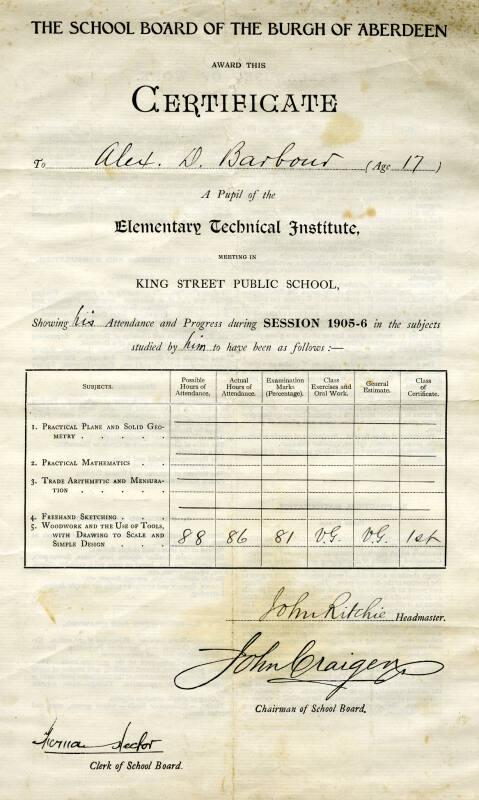 THE SCHOOL BOARD OF THE BURGH OF ABERDEEN
AWARD THIS
CERTIFICATE
To Alex. D. Barbour (Age 17)
A Pupil of the
Elementary Technical Institute,
MEETING IN
KING STREET PUBLIC SCHOOL,
Showing his Attendance and Progress during SESSION 1905-6 in the subjects
studied by him to have been as follows:—
SUBJECTS. Possible Hours of Attendance. Actual Hours of Attendance. Examination Marks (Percentage). Class Exercises and Oral Work. General Estimate. Class of Certificate.
1. PRACTICAL PLANE AND SOLID GEO-
METRY . . . . .
2. PRACTICAL MATHEMATICS . .
3. TRADE ARITHMETIC AND MENSURA-
TION . . . . .
4. FREEHAND SKETCHING . . .
5. WOODWORK AND THE USE OF TOOLS,
WITH DRAWING TO SCALE AND
SIMPLE DESIGN . . . 88 86 81 V.G. V.G. 1st
John Ritchie Headmaster.
John Craigen
Chairman of School Board.
Hector
Clerk of School Board.